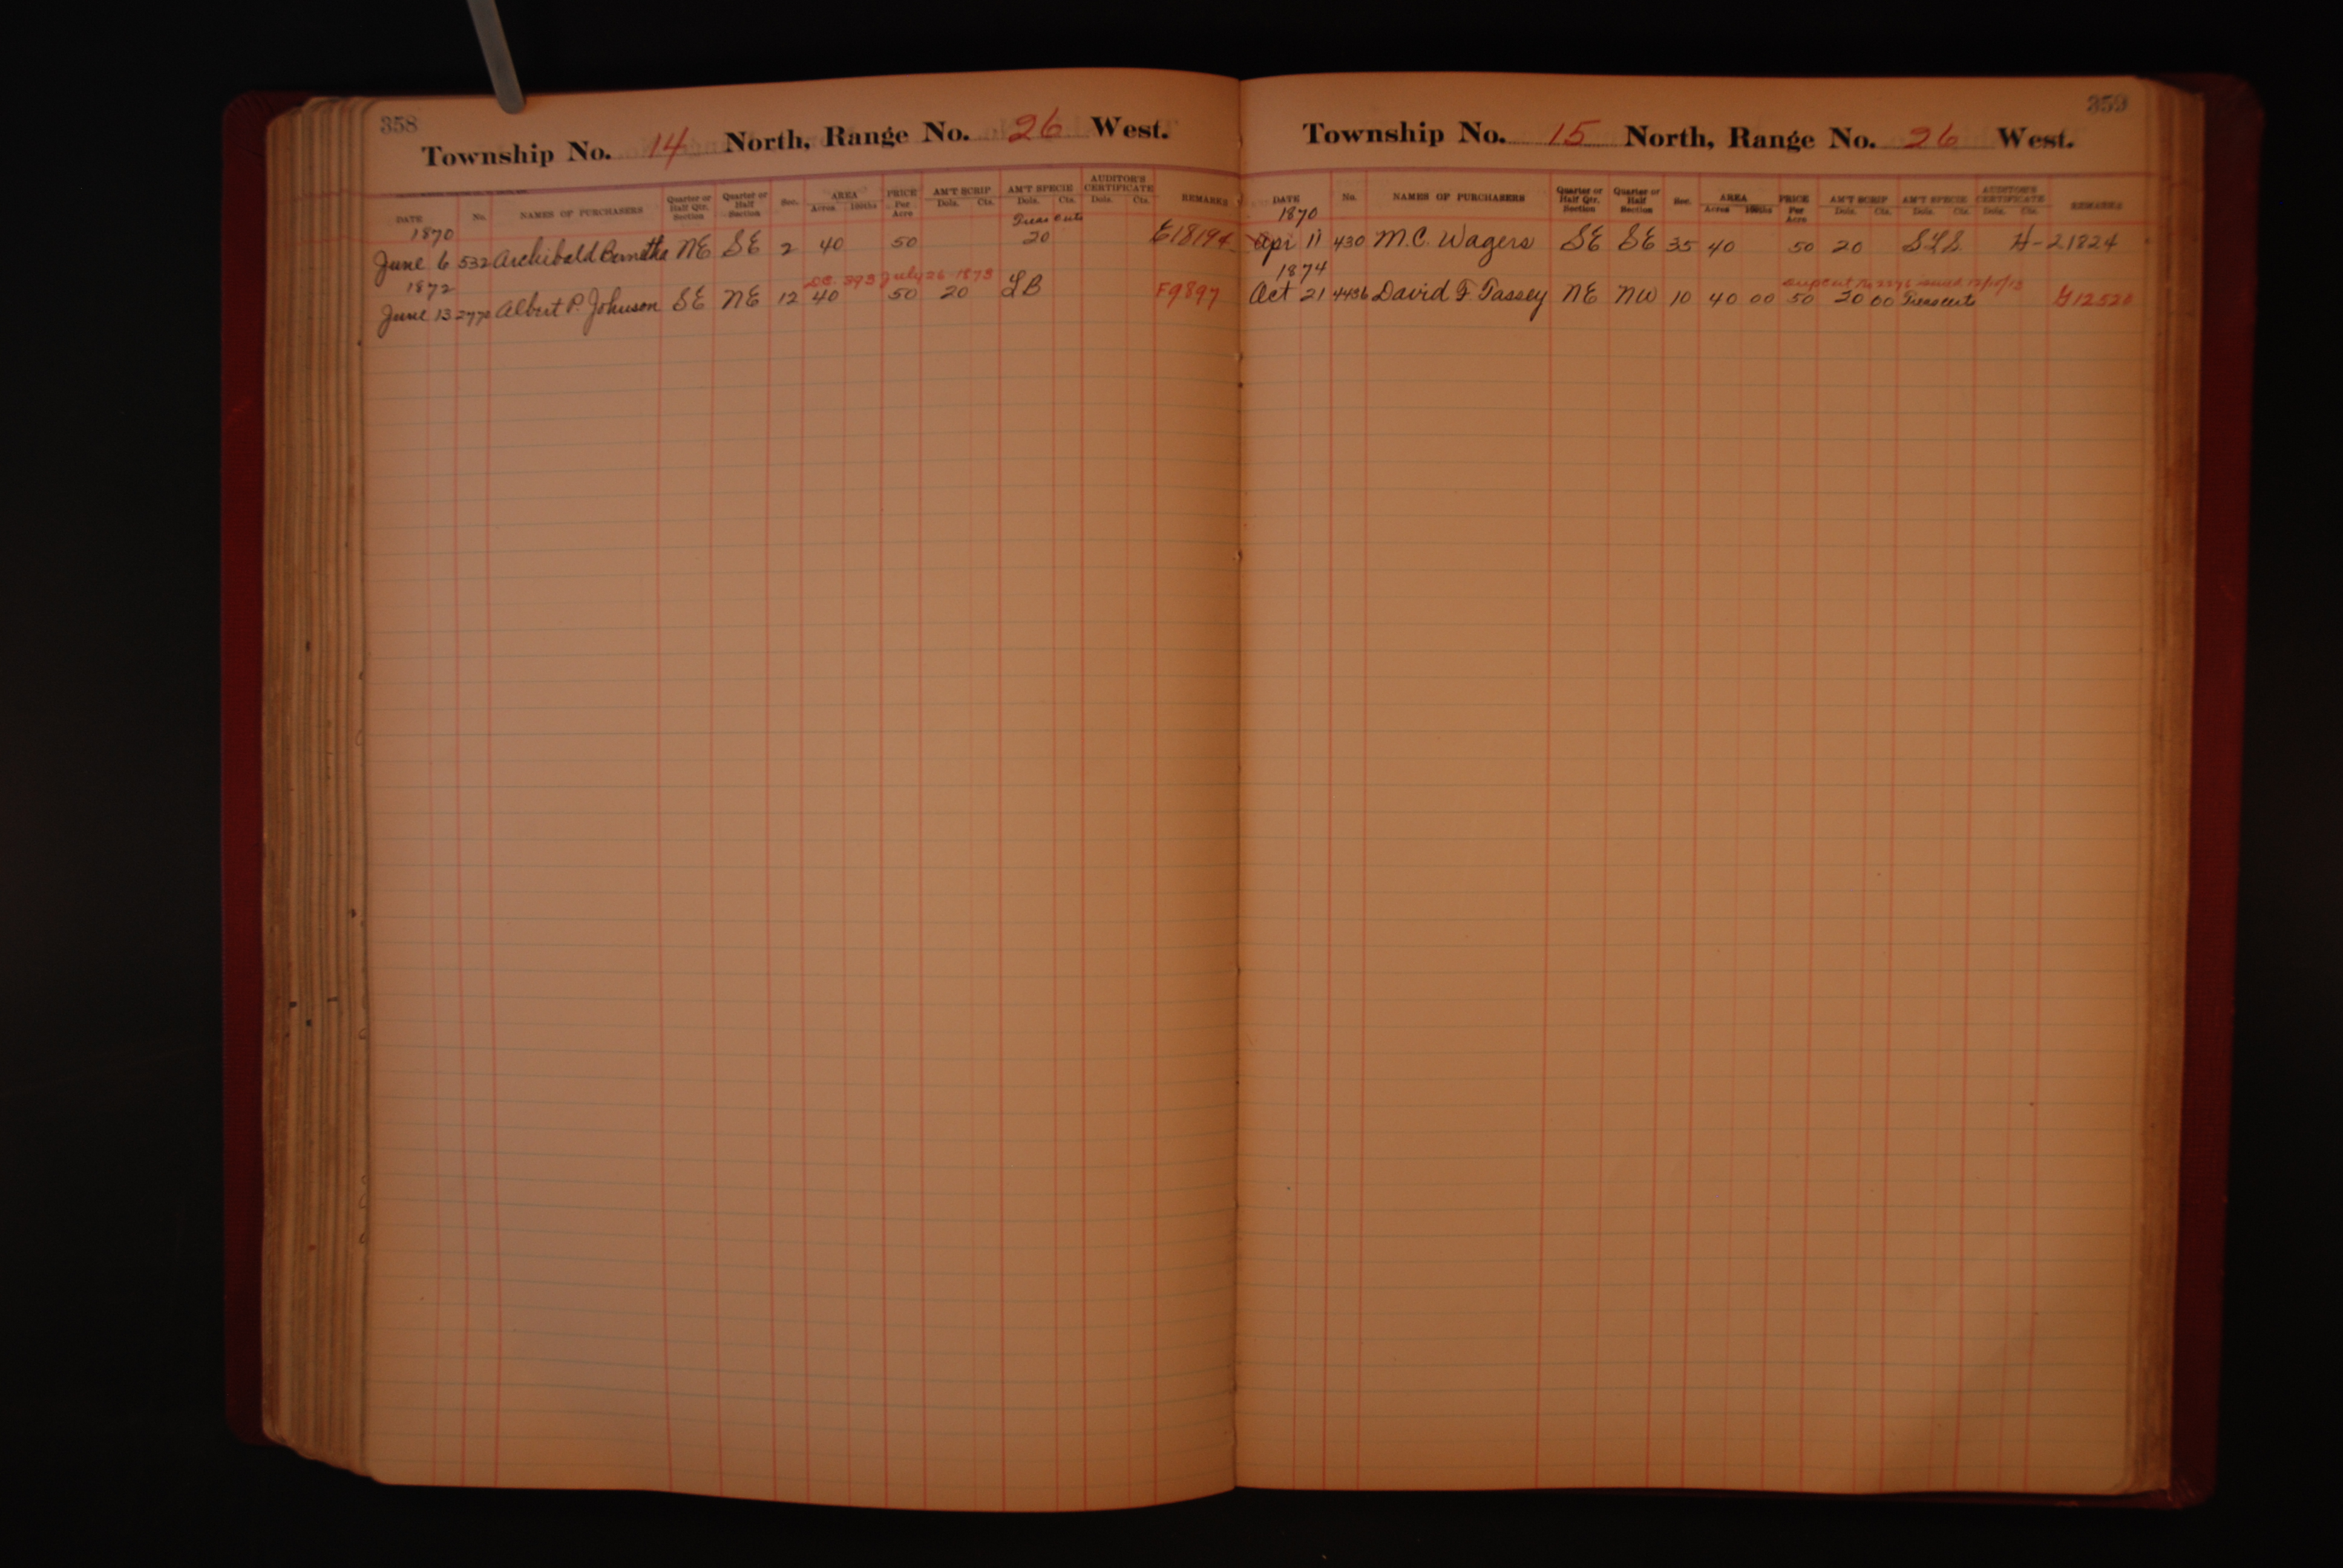 358
Township No. 14 North, Range No. 26 West.
DATE No. NAMES OF PURCHASERS Quarter or Half Qtr. Section Quarter or Half Section Sec. AREA Acres 100ths PRICE Per Acre AM'T SCRIP Dols. Cts. AM'T SPECIE Dols. Cts. AUDITOR'S CERTIFICATE Dols. Cts. REMARKS
1870 Treas Certs
June 6 532 Archibald NE SE 2 40 50 20 E18194
1872 July 26 1873
June 13 2772 Albert P. Johnson SE NE 12 40 50 20 LB F9897
359
Township No. 15 North, Range No. 26 West.
DATE No. NAMES OF PURCHASERS Quarter or Half Qtr. Section Quarter or Half Section Sec. AREA Acres 100ths PRICE Per Acre AM'T SCRIP Dols. Cts. AM'T SPECIE Dols. Cts. AUDITOR'S CERTIFICATE Dols. Cts. REMARKS
1870
Apr 11 430 M.C. Wagers SE SE 35 40 50 20 SLS H-21824
1874
Oct 21 4436 David F. Tassey NE NW 10 40 00 50 20 00 Treas certs